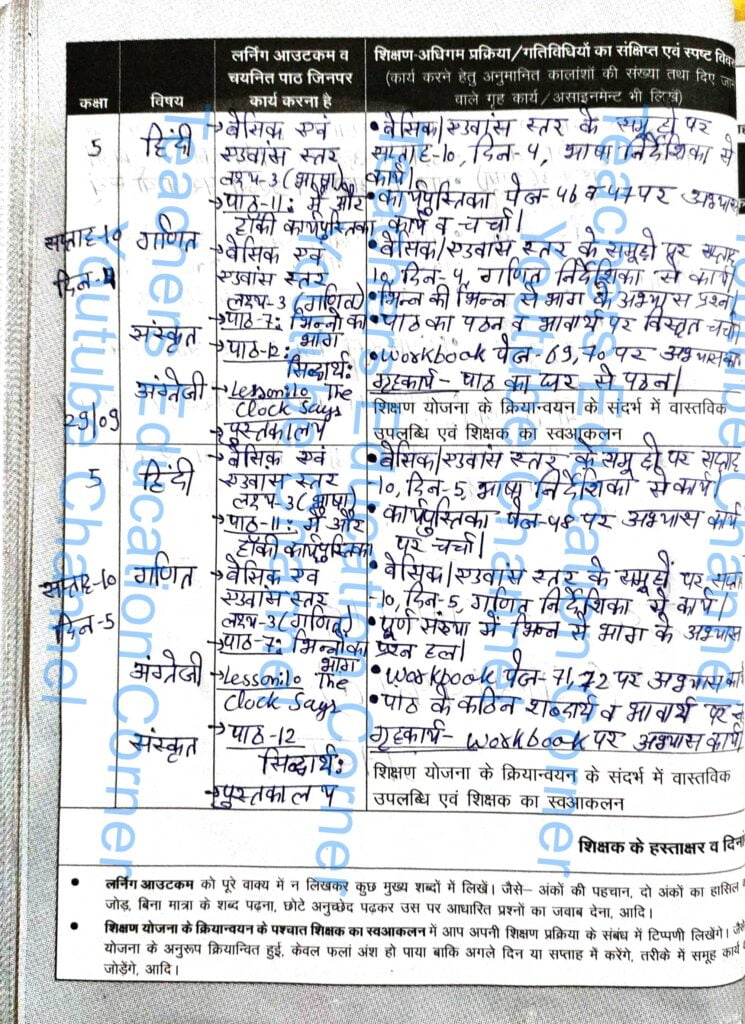 कक्षा
विषय
लर्निंग आउटकम व
चयनित पाठ जिनपर
कार्य करना है
शिक्षण-अधिगम प्रक्रिया/गतिविधियों का संक्षिप्त एवं स्पष्ट
(कार्य करने हेतु अनुमानित कालांशों की संख्या तथा दिए
वाले गृह कार्य/असाइनमेन्ट भी लिखें)
5
हिंदी
→ बेसिक एवं
एडवांस स्तर
लक्ष्य-3 (भाषा)
→ पाठ-11: मैं और
हॉकी कार्यपुस्तिका
• बेसिक/एडवांस स्तर के समूहों पर
सप्ताह-10, दिन-4, भाषा निर्देशिका से
कार्य।
• कार्यपुस्तिका पेज-46 व 47 पर अभ्यास
कार्य व चर्चा।
सप्ताह-10
दिन-4
29/09
गणित
→ बेसिक एवं
एडवांस स्तर
लक्ष्य-3 (गणित)
→ पाठ-7: भिन्नों का
भाग
• बेसिक/एडवांस स्तर के समूहों पर सप्ताह
10, दिन-4, गणित निर्देशिका से कार्य।
• भिन्न की भिन्न से भाग के अभ्यास प्रश्न।
संस्कृत
→ पाठ-12:
सिद्धार्थ:
• पाठ का पठन व भावार्थ पर विस्तृत चर्चा
अंग्रेजी
→ Lesson:10 The
Clock Says
→ पुस्तकालय
• Workbook पेज-69,70 पर अभ्यास
गृहकार्य- पाठ का घर से पठन।
शिक्षण योजना के क्रियान्वयन के संदर्भ में वास्तविक
उपलब्धि एवं शिक्षक का स्वआकलन
5
हिंदी
→ बेसिक एवं
एडवांस स्तर
लक्ष्य-3 (भाषा)
→ पाठ-11: मैं और
हॉकी कार्यपुस्तिका
• बेसिक/एडवांस स्तर के समूहों पर सप्ताह
10, दिन-5, भाषा निर्देशिका से कार्य।
• कार्यपुस्तिका पेज-48 पर अभ्यास कार्य
पर चर्चा।
सप्ताह-10
दिन-5
गणित
→ बेसिक एवं
एडवांस स्तर
लक्ष्य-3 (गणित)
→ पाठ-7: भिन्नों का
भाग
• बेसिक/एडवांस स्तर के समूहों पर
-10, दिन-5, गणित निर्देशिका से कार्य।
• पूर्ण संख्या में भिन्न से भाग के अभ्यास
प्रश्न हल।
अंग्रेजी
→ Lesson:10 The
Clock Says
• Workbook पेज-71,72 पर अभ्यास
संस्कृत
→ पाठ-12
सिद्धार्थ:
→ पुस्तकालय
• पाठ के कठिन शब्दार्थ व भावार्थ पर
गृहकार्य- Workbook पर अभ्यास कार्य
शिक्षण योजना के क्रियान्वयन के संदर्भ में वास्तविक
उपलब्धि एवं शिक्षक का स्वआकलन
शिक्षक के हस्ताक्षर व
• लर्निंग आउटकम को पूरे वाक्य में न लिखकर कुछ मुख्य शब्दों में लिखें। जैसे– अंकों की पहचान, दो अंकों का हासिल
जोड़, बिना मात्रा के शब्द पढ़ना, छोटे अनुच्छेद पढ़कर उस पर आधारित प्रश्नों का जवाब देना, आदि।
• शिक्षण योजना के क्रियान्वयन के पश्चात शिक्षक का स्वआकलन में आप अपनी शिक्षण प्रक्रिया के संबंध में टिप्पणी लिखेंगे।
योजना के अनुरूप क्रियान्वित हुई, केवल फलां अंश हो पाया बाकि अगले दिन या सप्ताह में करेंगे, तरीके में समूह कार्य
जोड़ेंगे, आदि।
Teachers Education Corner
Youtube Channel
Teachers Education Corner
Youtube Channel
Teachers Education Corner
Youtube Channel